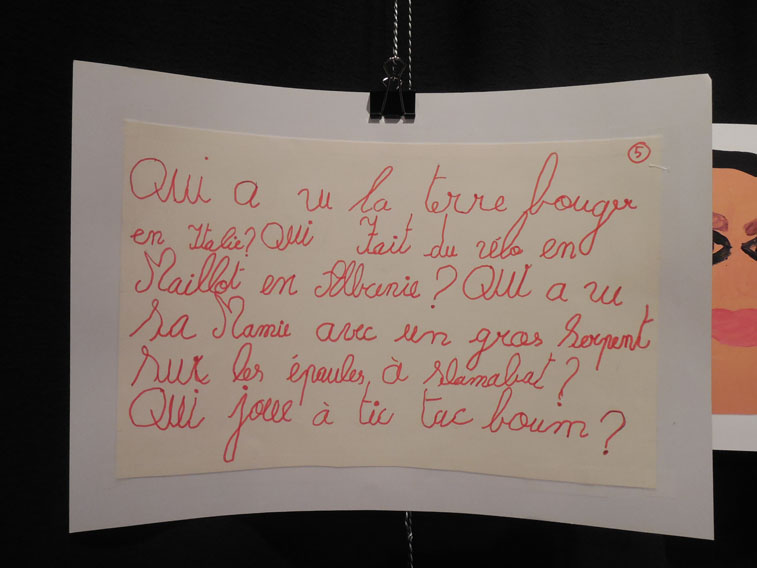 5
Qui a vu la terre bouger
en Italie? Qui Fait du vélo en
Maillot en Albanie? Qui a vu
sa Mamie avec un gros serpent
sur les épaules à slamabat?
Qui joue à tic tac boum?